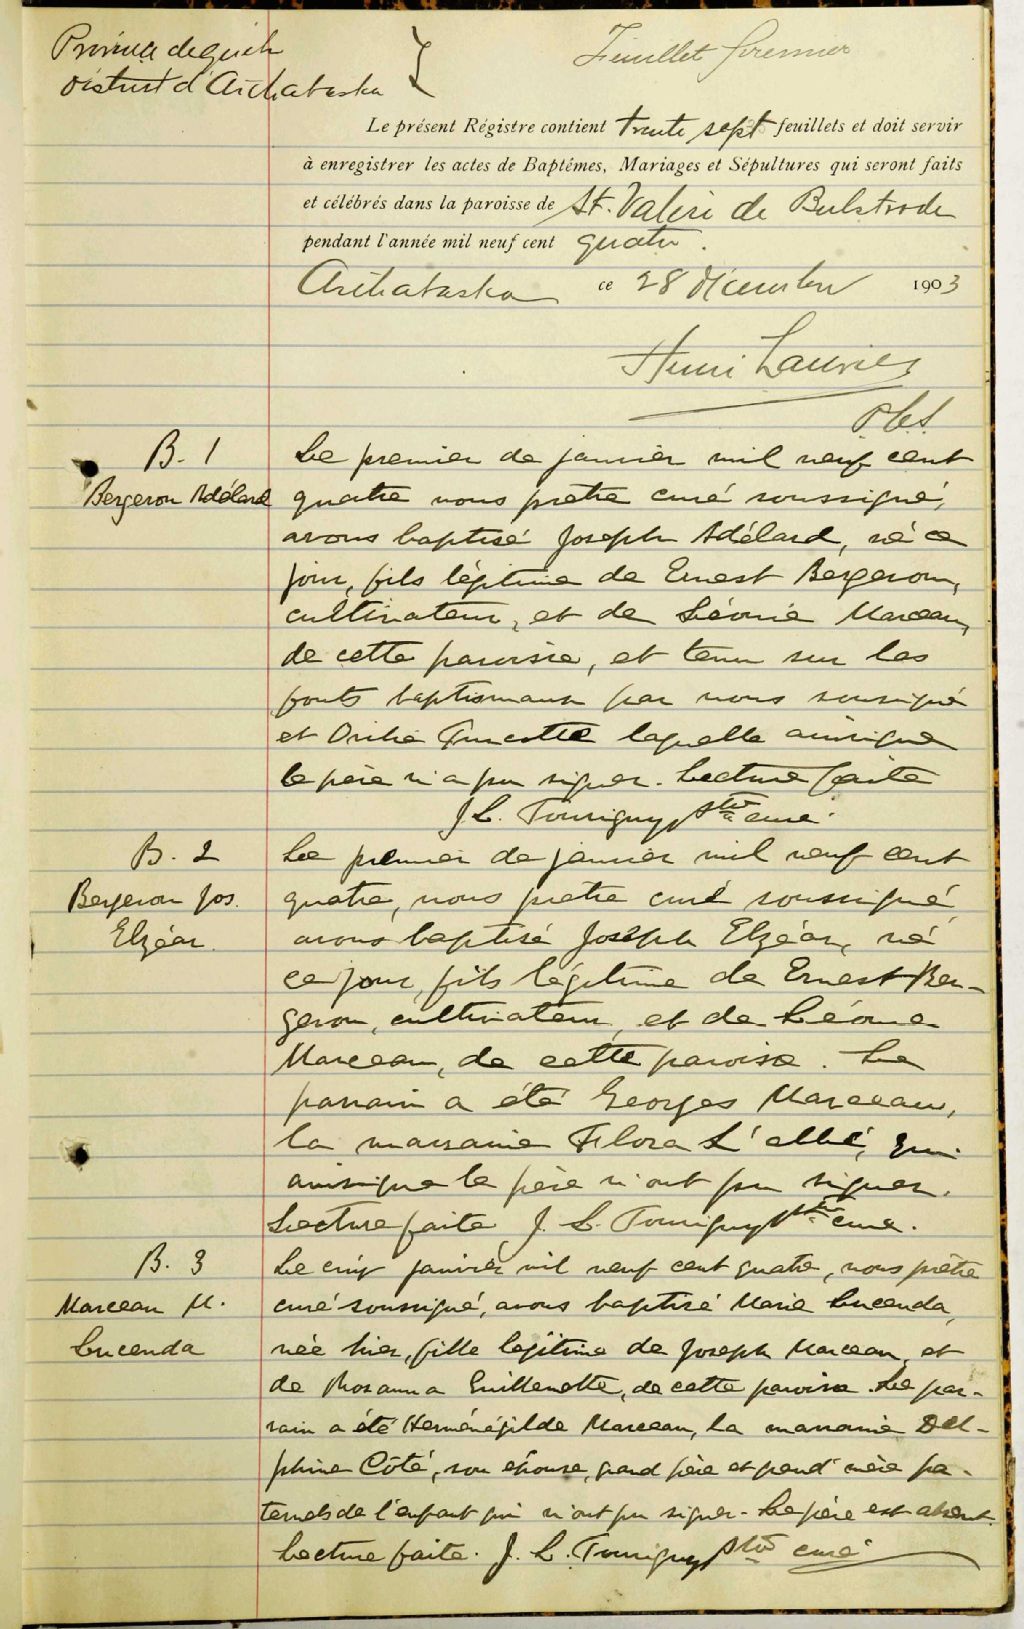 Province de Québec
District d'Arthabaska
Feuillet premier
Le présent Régistre contient trente sept feuillets et doit servir
à enregistrer les actes de Baptêmes, Mariages et Sépultures qui seront faits
et célébrés dans la paroisse de St. Valère de Bulstrode
pendant l'année mil neuf cent quatre.
Arthabaska ce 28 décembre 1903
Henri Laurier
P.C.S.
B. 1
Bergeron Adélard
Le premier de janvier mil neuf cent
quatre nous prêtre curé soussigné,
avons baptisé Joseph Adélard, né ce
jour, fils légitime de Ernest Bergeron,
cultivateur, et de Léonie Marceau,
de cette paroisse, et tenu sur les
fonts baptismaux par nous soussigné
et laquelle ainsique
le père n'a pu signer. Lecture faite
J. L. Tourigny, Ptre curé.
B. 2
Bergeron Jos.
Elzéar
Le premier de janvier mil neuf cent
quatre, nous pretre curé soussigné
avons baptisé Joseph Elzéar, né
ce jour, fils légitime de Ernest Ber-
geron, cultivateur, et de Léonie
Marceau, de cette paroisse. Le
parrain a été Georges Marceau,
la marraine Flora L'abbé, qui
ainsique le père n'ont pu signer.
Lecture faite J. L. Tourigny Ptre curé.
B. 3
Marceau M.
Lucenda
Le cinq janvier mil neuf cent quatre, nous prêtre
curé soussigné, avons baptisé Marie Lucenda,
née hier, fille légitime de Joseph Marceau, et
de Rosanna Guillemette, de cette paroisse. Le par-
rain a été Herménégilde Marceau, la marraine Del-
phine Côté, son épouse, grand père et grand'mère pa-
ternels de l'enfant qui n'ont pu signer. Le père est absent.
Lecture faite. J. L. Tourigny Ptre curé